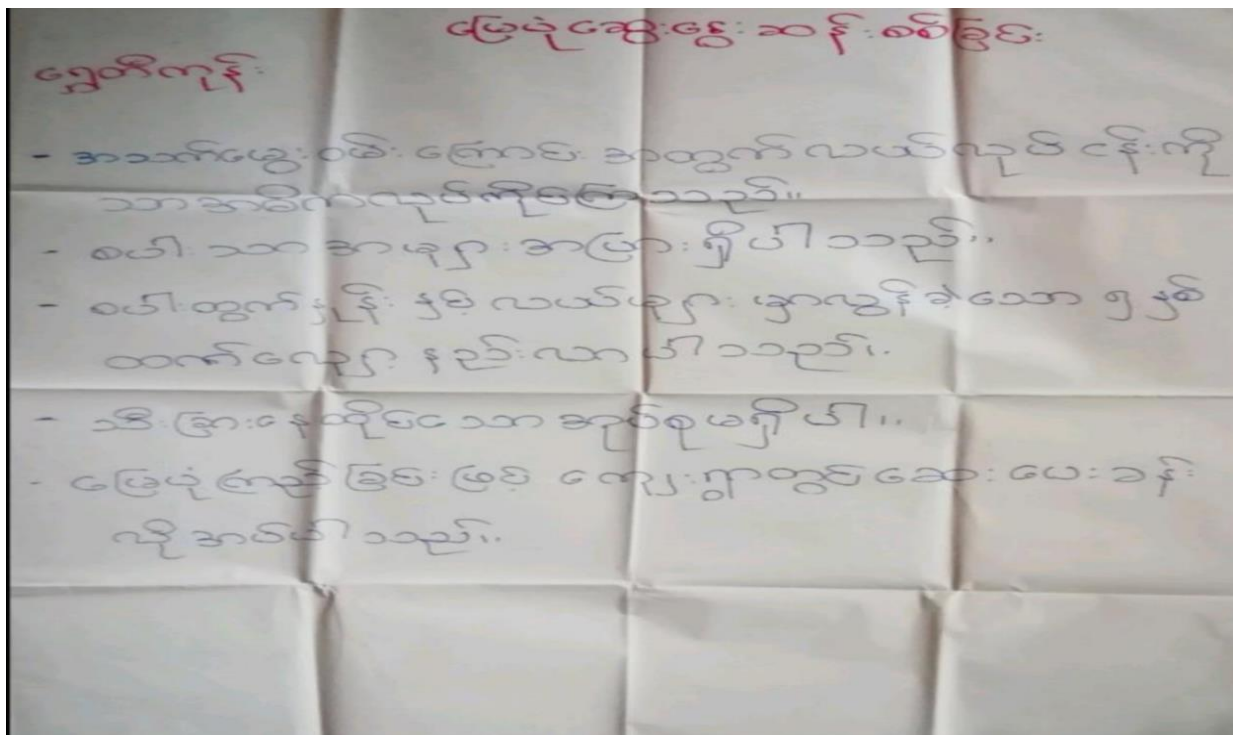 မြေပုံဆွေးနွေးဆန်းစစ်ခြင်း
ရွှေတီကုန်း
- အသက်မွေးဝမ်းကြောင်းအတွက် လယ်လုပ်ငန်းကို
သာအဓိကလုပ်ကိုင်ကြသည်။
- စပါးသာအများအပြားရှိပါသည်။
- စပါးထွက်နှုန်းနှင့် လယ်များမှာလွန်ခဲ့သော ၅ နှစ်
ထက်လျော့နည်းလာပါသည်။
- သီးခြားနေထိုင်သောအုပ်စုမရှိပါ။
- မြေပုံကြည့်ခြင်းဖြင့် ကျေးရွာတွင်ဆေးပေးခန်း
လိုအပ်ပါသည်။